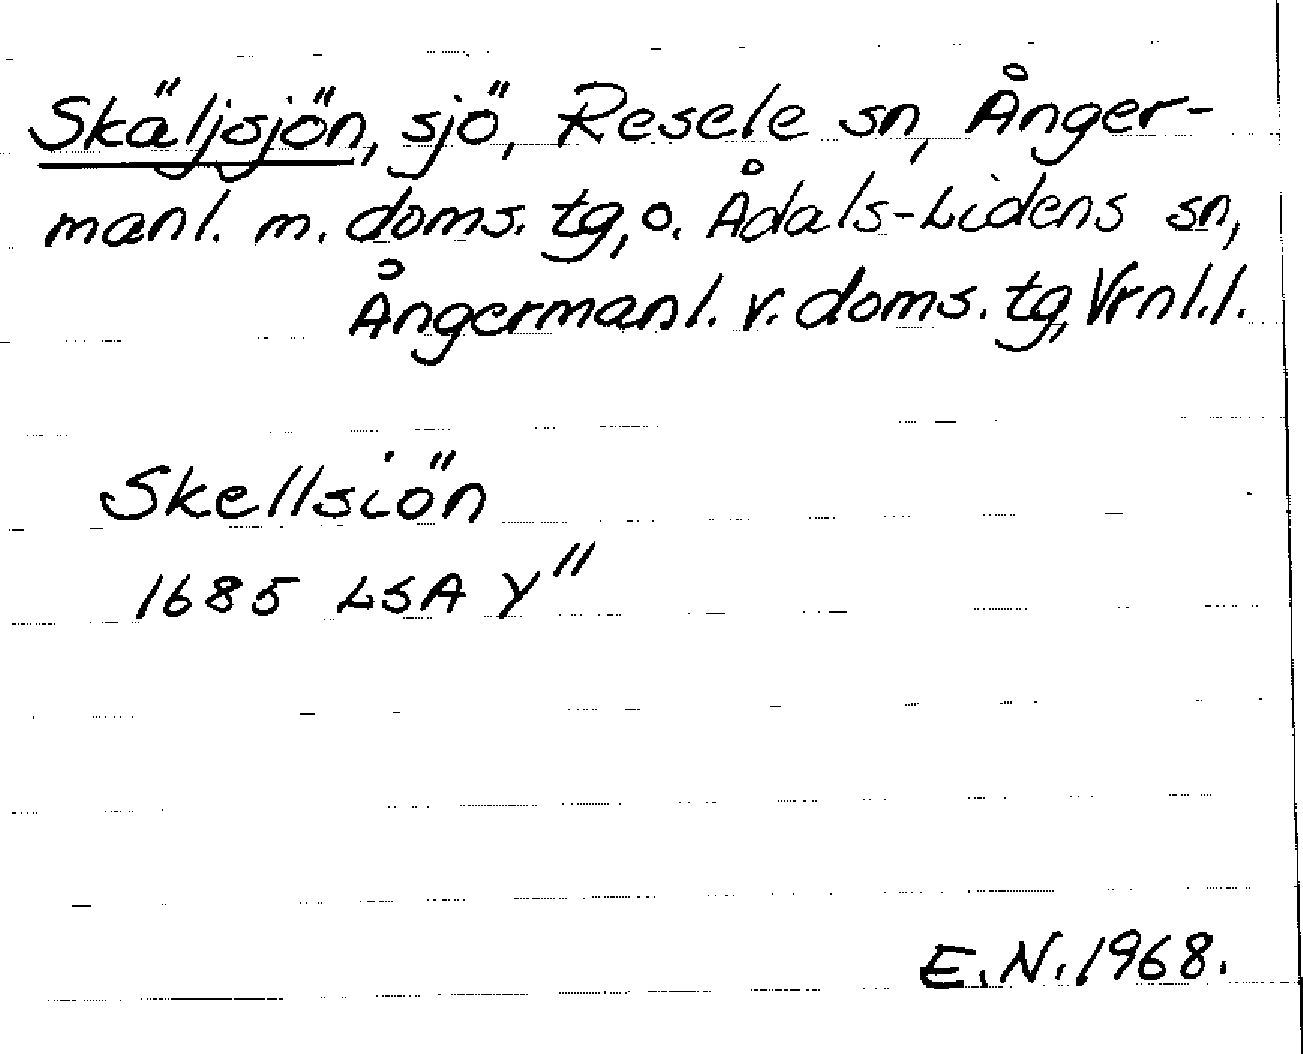 Skäljsjön, sjö, Resele sn, Ånger-
manl. m. doms. tg, o. Ådals-Lidens sn,
Ångermanl. v. doms. tg, Vrnl.l.
Skellsiön
1685 LSA Y"
E.N. 1968.